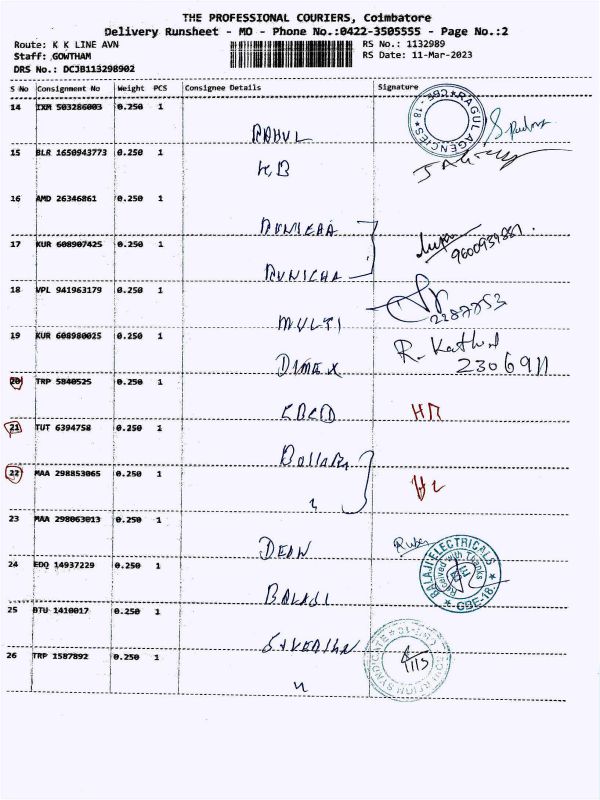 THE PROFESSIONAL COURIERS, Coimbatore
Delivery Runsheet - MO - Phone No.:0422-3505555 - Page No.:2
Route: K K LINE AVN
Staff: GOWTHAM
DRS No.: DCJB113298902
RS No.: 1132989
RS Date: 11-Mar-2023
S No Consignment No Weight PCS Consignee Details Signature
14 IXM 503286003 0.250 1
RAHUL
RAGUL AGENCIES * CBE - 18 *
15 BLR 1650943773 0.250 1
K.B
16 AMD 26346861 0.250 1
RUNICHA
17 KUR 608907425 0.250 1
RUNICHA
18 VPL 941963179 0.250 1
MULTI
2287753
19 KUR 608980025 0.250 1
DIMEX
R. Kathir
20 TRP 5840525 0.250 1
21 TUT 6394758 0.250 1
22 MAA 298853065 0.250 1
"
23 MAA 298063013 0.250 1
DEAN
24 EDQ 14937229 0.250 1
BALAJI
BALAJI ELECTRICALS
Received with Thanks
* CBE-18 *
25 BTU 1410017 0.250 1
26 TRP 1587892 0.250 1
"